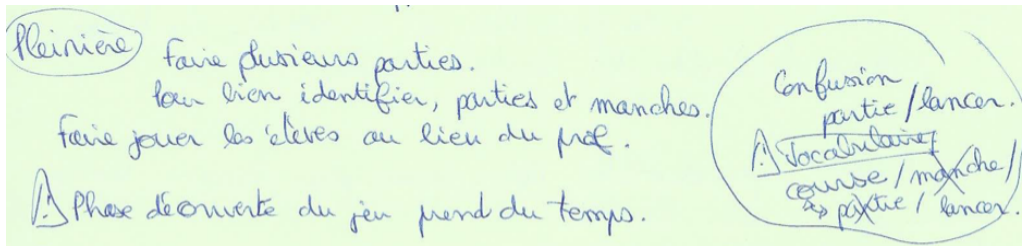 Pleinière
Faire plusieurs parties.
Pour bien identifier, parties et manches.
Faire jouer les élèves au lieu du prof.
⚠ Phase découverte du jeu prend du temps.
Confusion
partie/lancer.
⚠ Vocabulaire
course/manche/
↳ partie/lancer.